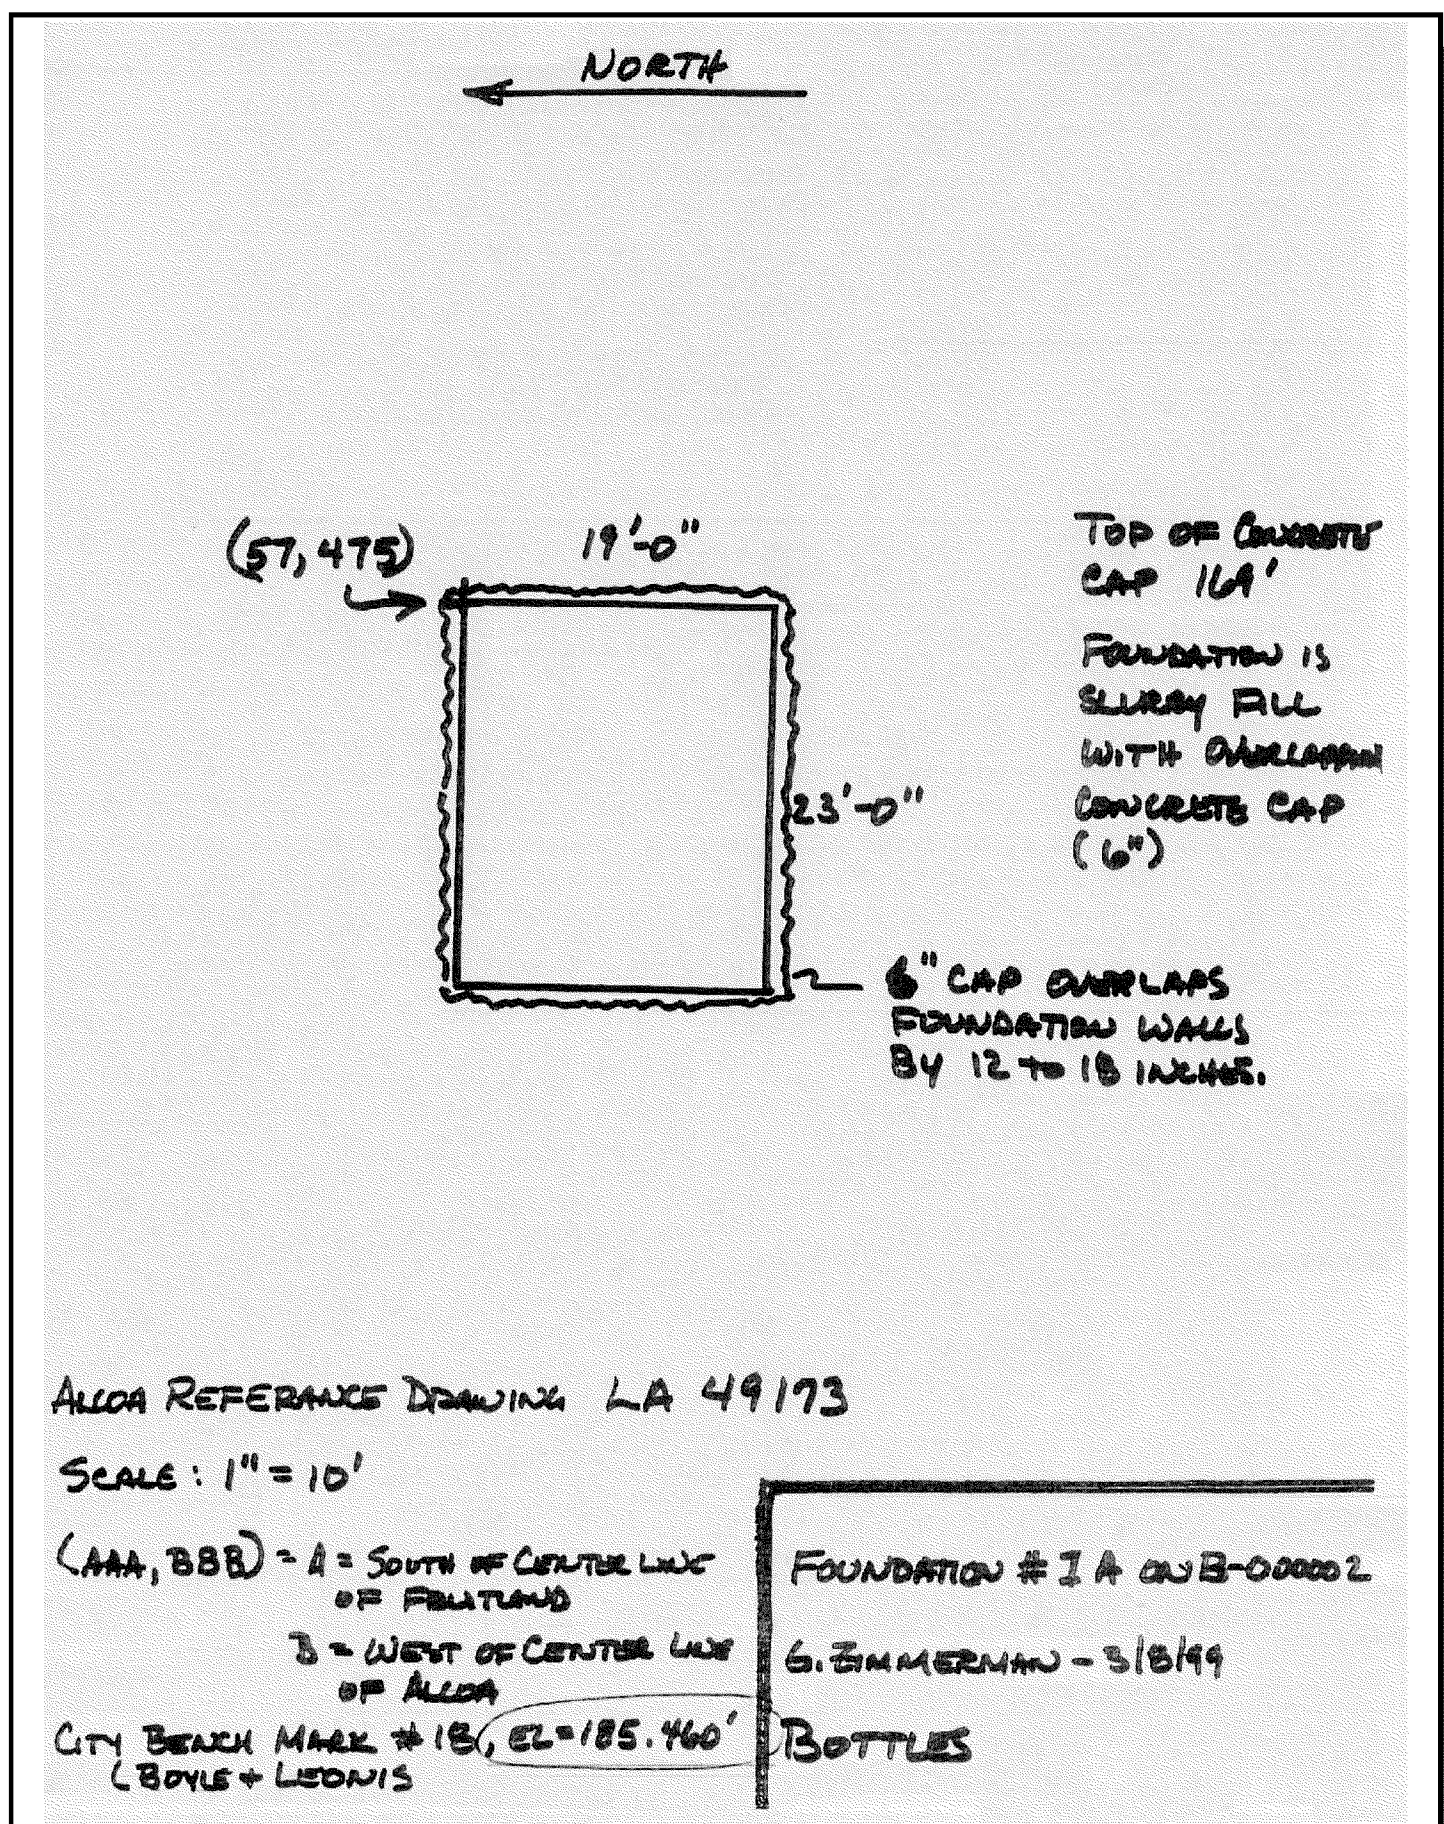 NORTH
(57, 475)
19'-0"
TOP OF CONCRETE
CAP 169'
FOUNDATION IS
SLURRY FILL
WITH OVERLAPPIN
CONCRETE CAP
(6")
23'-0"
6" CAP OVERLAPS
FOUNDATION WALLS
BY 12 TO 18 INCHES.
ALCOA REFERANCE DRAWING LA 49173
SCALE: 1" = 10'
(AAA, BBB) = A = SOUTH OF CENTER LINE
OF FRUITLAND
B = WEST OF CENTER LINE
OF ALCOA
CITY BENCH MARK # 18, EL=185.460'
(BOYLE + LEONIS
FOUNDATION # I A ON B-000002
G. ZIMMERMAN - 3/8/99
BOTTLES